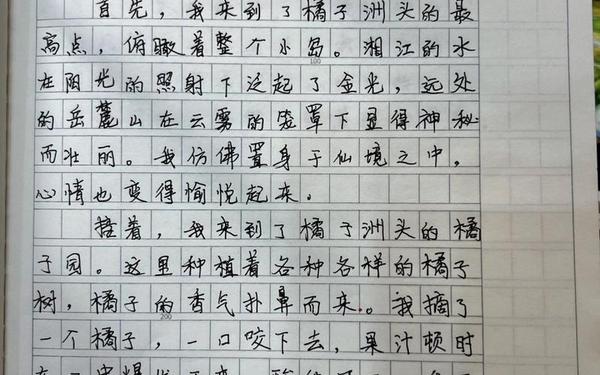 首先，我来到了橘子洲头的最
高点，俯瞰着整个小岛。湘江的水
100
在阳光的照射下泛起了金光，远处
的岳麓山在云雾的笼罩下显得神秘
而壮丽。我仿佛置身于仙境之中，
心情也变得愉悦起来。
接着，我来到了橘子洲头的橘
子园。这里种植着各种各样的橘子
树，橘子的香气扑鼻而来。我摘了
200
一个橘子，一口咬下去，果汁顿时